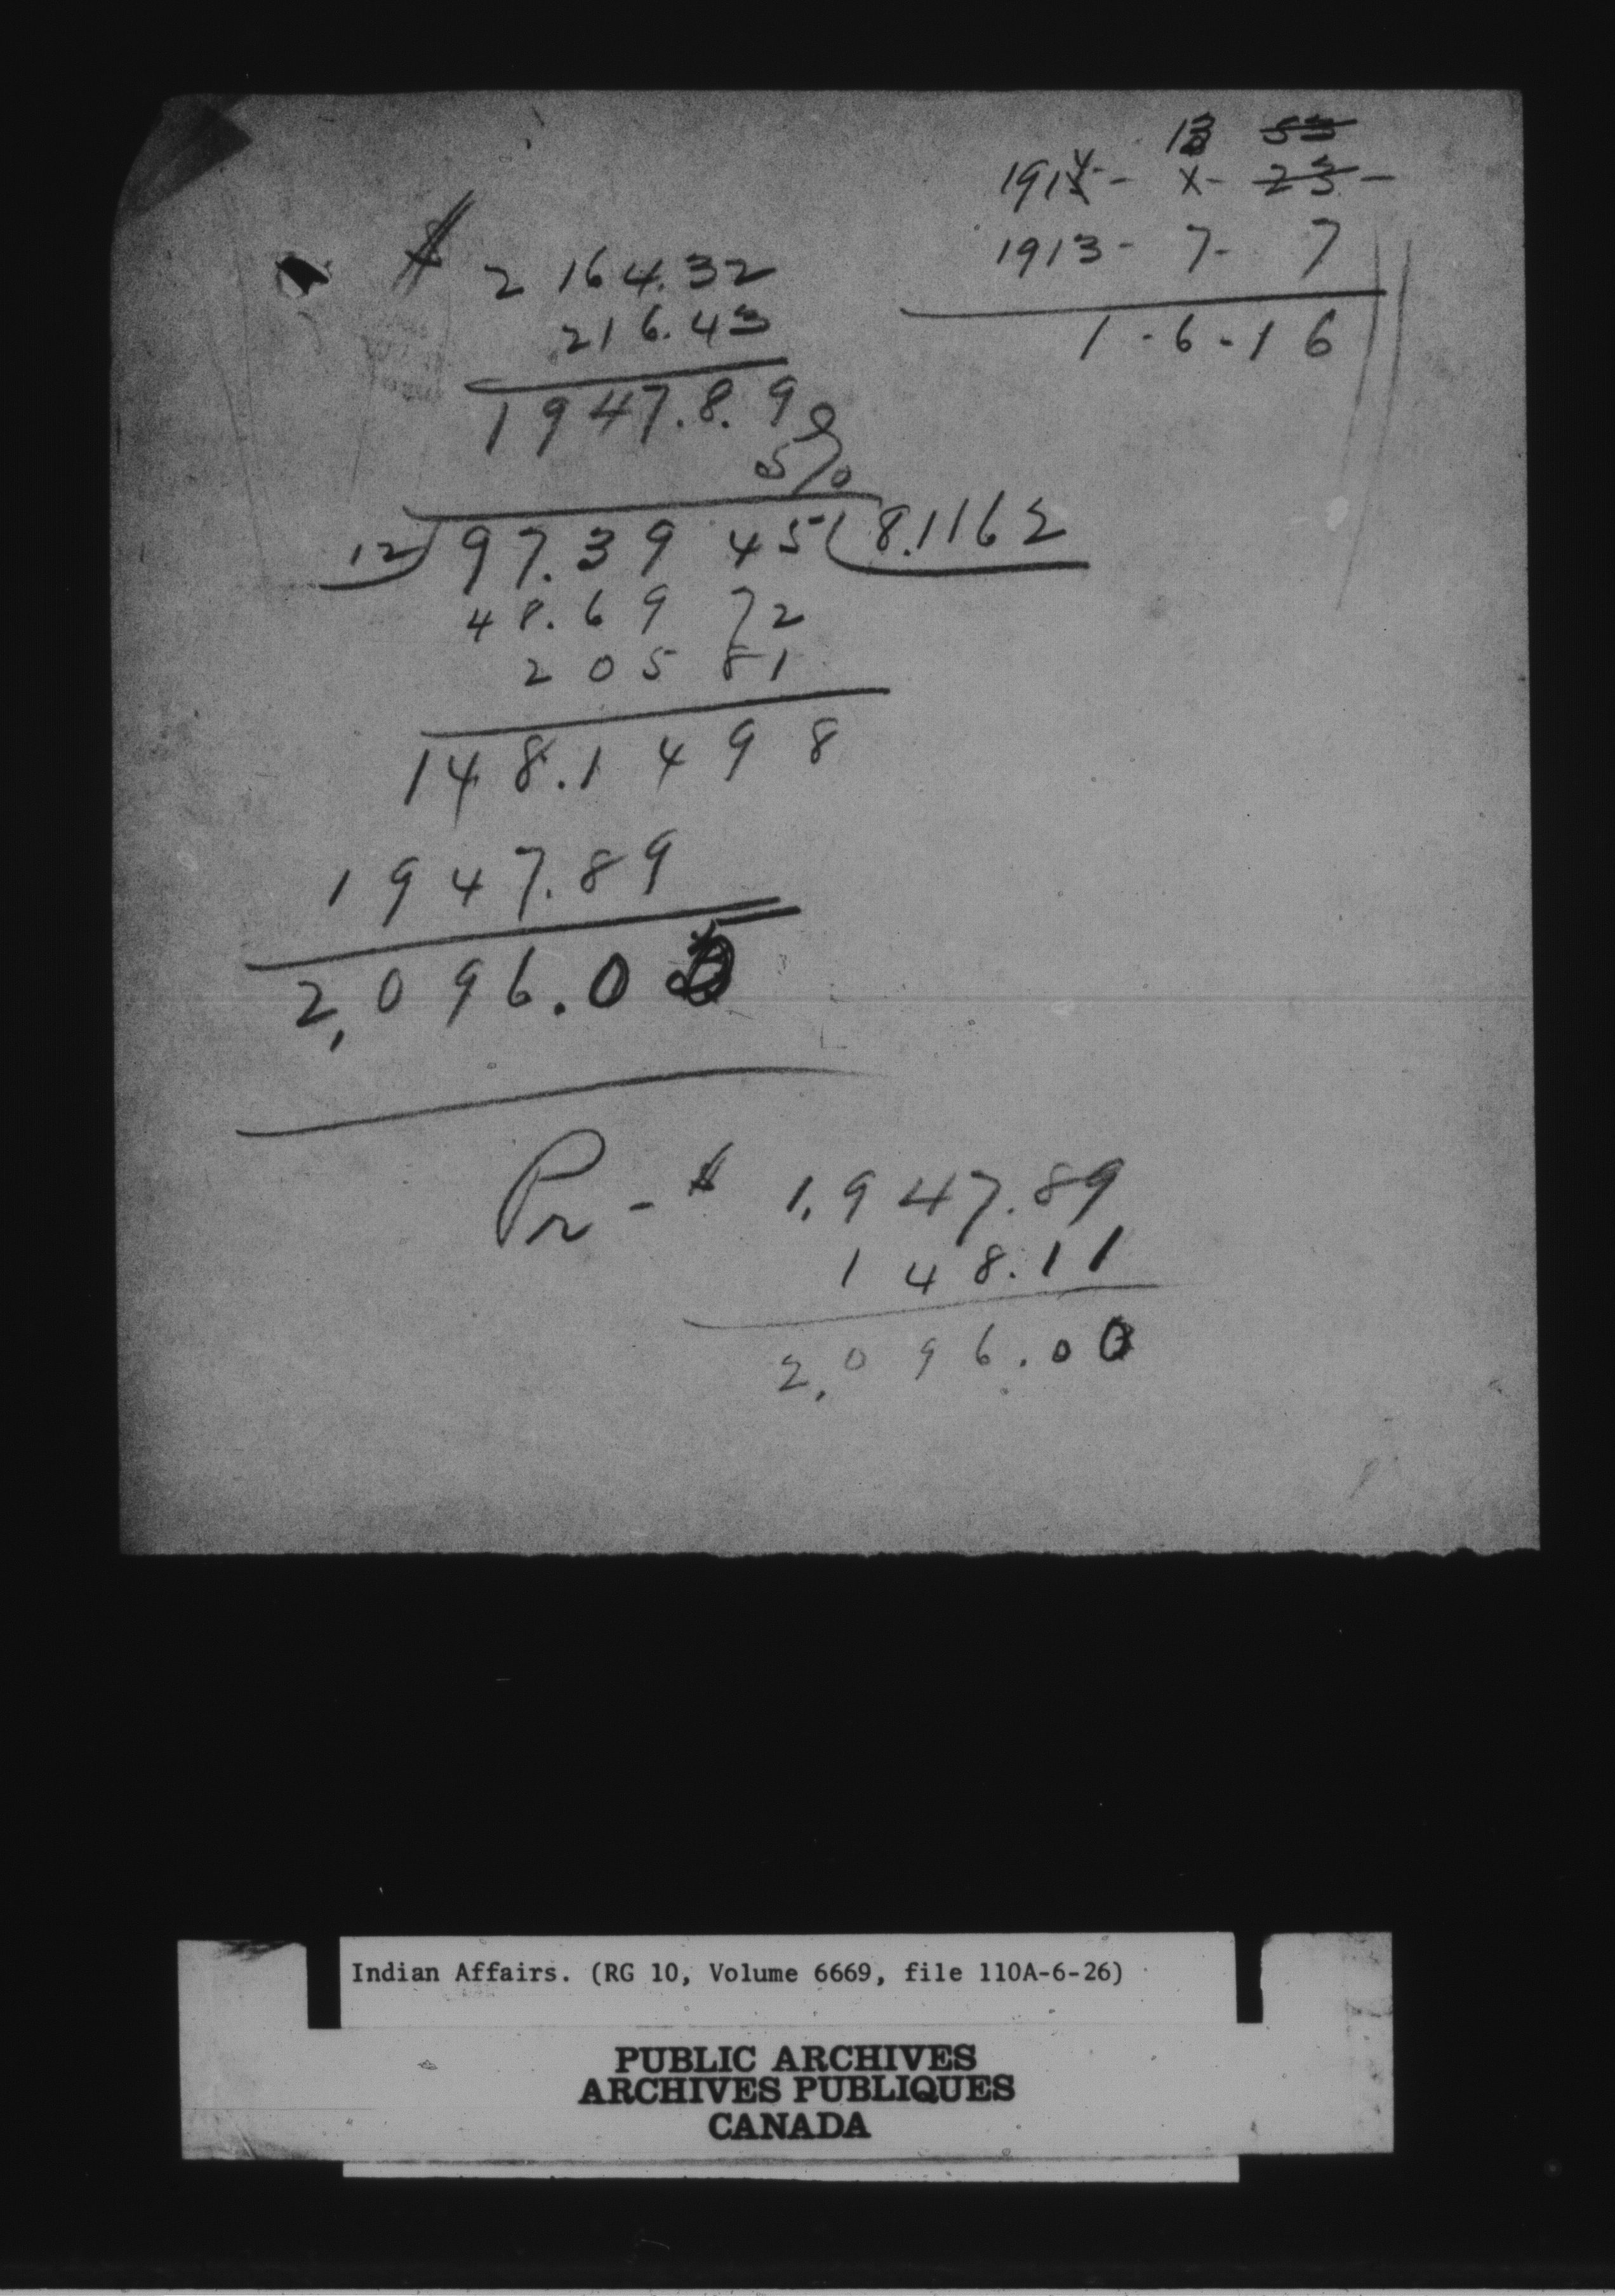 13 53
1914 - x - 23 -
1913 - 7 - 7
1 - 6 - 16
$ 2 164.32
216.43
1947.8.9
5%
12) 97.39 45 ( 8.1162
48.69 72
2 05 81
148.1498
1947.89
2,096.00
Pr - $ 1,947.89
148.11
2,096.00
Indian Affairs. (RG 10, Volume 6669, file 110A-6-26)
PUBLIC ARCHIVES
ARCHIVES PUBLIQUES
CANADA